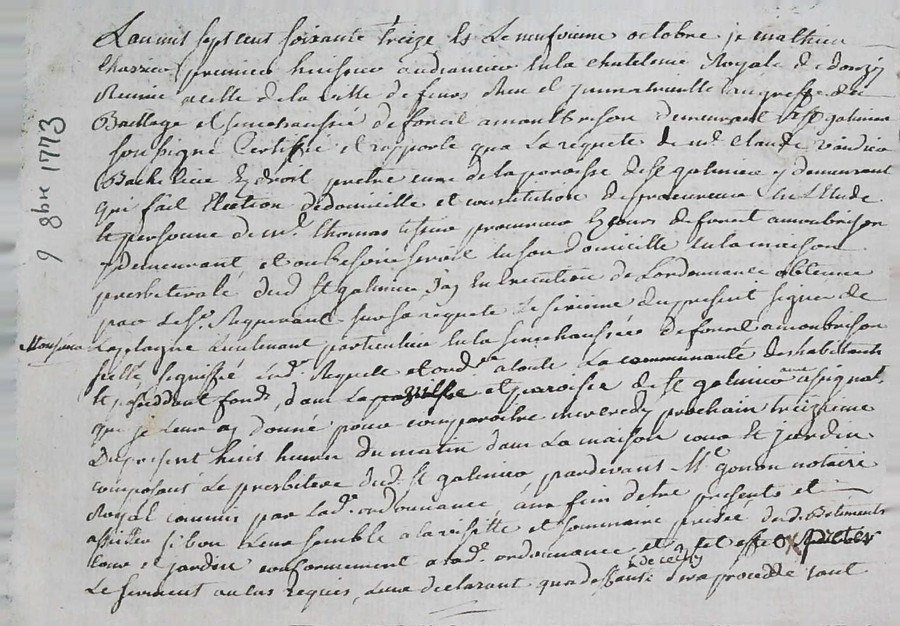 L'an mil sept cent soixante treize et le neufvieme octobre je mathieu
premier huissier audiancier en la chatelenie Royale de donzy
Reunie a celle de la ville de feurs Rieu et jmmatriculle au greffe du
Baillage et senechaussée de forest a montbrison demeurant a St galmier
soussigné Certiffie et rapporte qua la requete de mre Claude
Bachellier En droit pretre curé de la paroisse de St galmier y demeurant
qui fait Election de domicille et constitution de procureur En L'Etude
et personne de me thomas procureur Es cours de forest a montbrison
y demeurant et au besoin seroit en son domicille en la maison
presbiterale dud St galmier, j'ay En Execution de Lordonnance obtenue
par Le Sr Requerant sur sa requete Le sixieme du present signée de
Monsieur
Laplagne Lieutenant particulier en la senechaussée de forest a montbrison
scellé signiffié Lade Requette et ordce a toute La communauté des habittants
et possedant fonds, dans La et paroisse de St galmier avec assignaon
que je Leur ay donné pour comparoitre mercredy prochain treizieme
Du present huit heures du matin dans La maison cour et jardin
composant Le presbitere dud. St galmier, pardevant Me gonon notaire
Royal commis par lade ordonnance, aux fins d'etre presents et
assister si bon Leur semble a la visitte et sommaire prisée desd. Batiments
cour et jardin conformement a lade ordonnance et a cet effet preter
de ce enquis
Le serment au cas Requis, Leur declarant qua deffaut sera procedé tant
9 8bre 1773